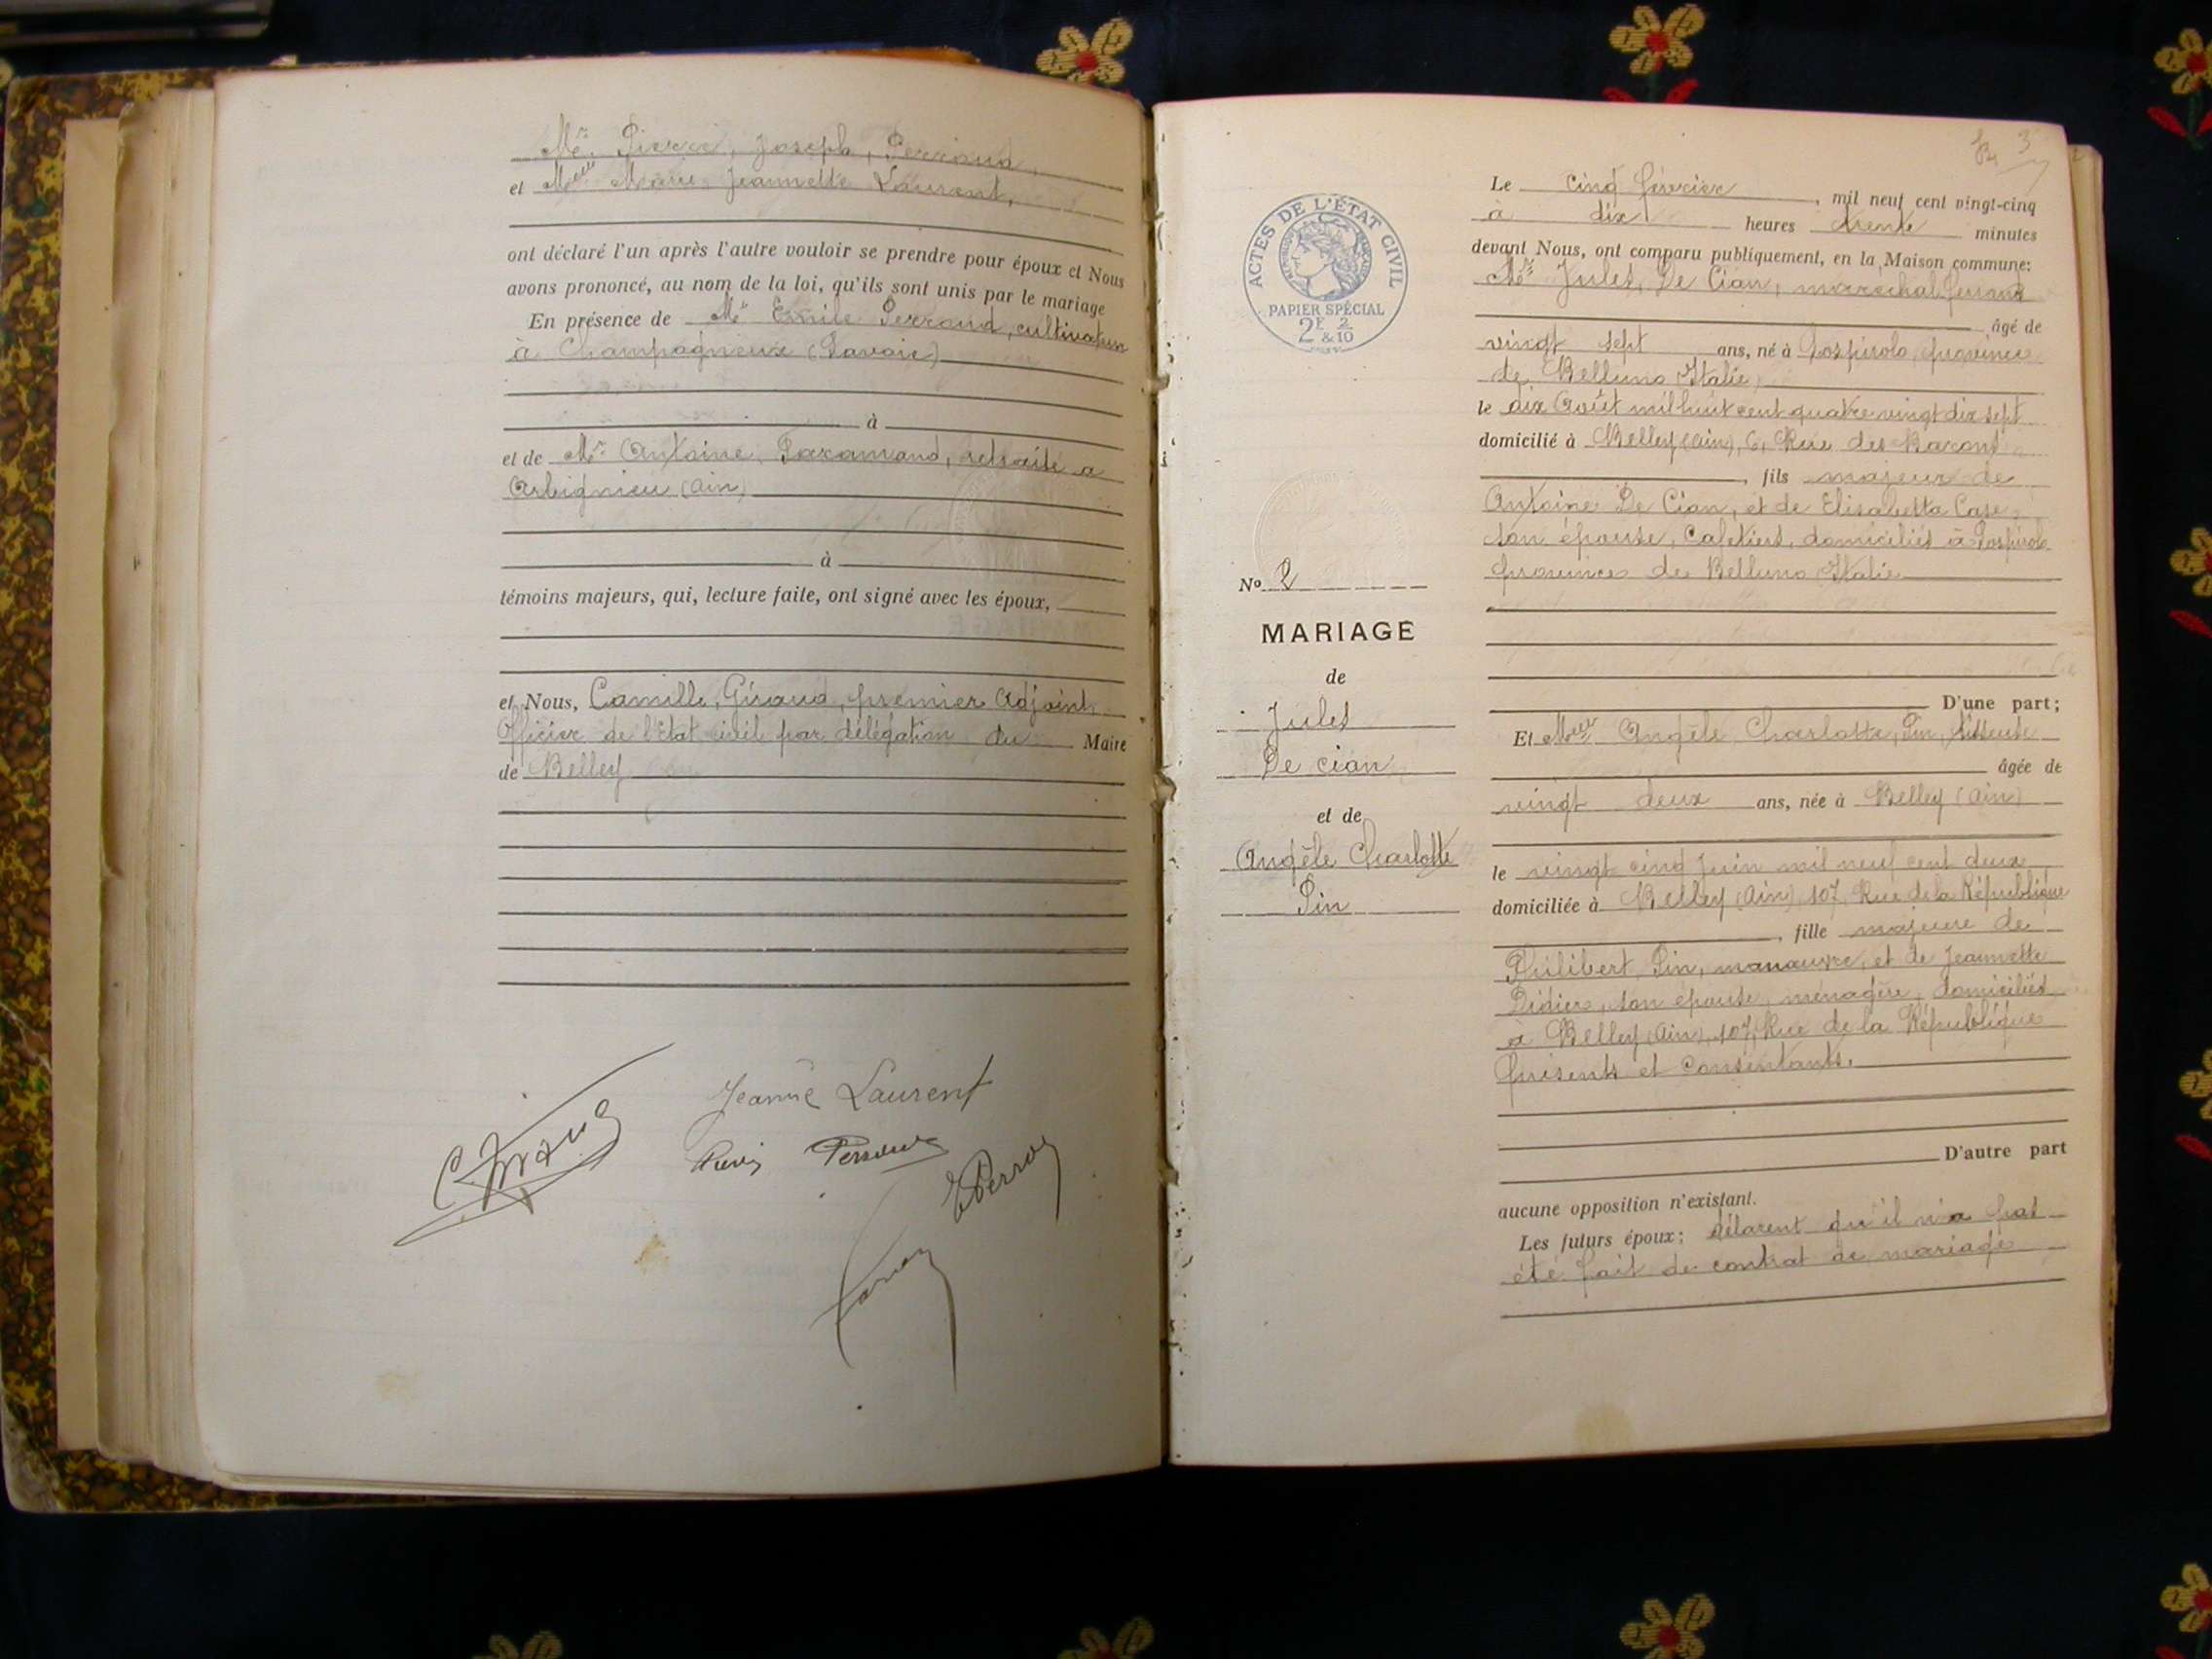 Mr. Pierre, Joseph, Perraud,
et Melle Marie, Jeannette Laurent,
ont déclaré l'un après l'autre vouloir se prendre pour époux et Nous
avons prononcé, au nom de la loi, qu'ils sont unis par le mariage
En présence de Mr Emile Perraud, cultivateur
à Champagneux (Savoie)
à
et de Mr Antoine, retraité à
Arbignieu (Ain)
à
témoins majeurs, qui, lecture faite, ont signé avec les époux,
et Nous, Camille, Giraud, premier Adjoint,
Officier de l'état civil par délégation du Maire
de Belley
Jeanne Laurent
C Giraud
EPerraud
3
ACTES DE L'ÉTAT CIVIL
RÉPUBLIQUE FRANÇAISE
PAPIER SPÉCIAL
2F 2/10
&10
No 2
MARIAGE
de
Jules
De cian
et de
Angèle Charlotte
Pin
Le cinq février, mil neuf cent vingt-cinq
à dix heures trente minutes
devant Nous, ont comparu publiquement, en la Maison commune:
Mr Jules, De Cian, maréchal ferrant
âgé de
vingt sept ans, né à Sospirolo, province
de Belluno (Italie)
le dix Août mil huit cent quatre vingt dix sept
domicilié à Belley (Ain), 6, Rue des Barons
, fils majeur de
Antoine De Cian, et de Elisabetta Case,
son épouse, cafetiers, domiciliés à Sospirolo
province de Belluno Italie
D'une part;
Et Melle Angèle Charlotte, Pin, tisseuse
âgée de
vingt deux ans, née à Belley (Ain)
le vingt cinq Juin mil neuf cent deux
domiciliée à Belley (Ain), 107, Rue de la République
, fille majeure de
Philibert Pin, manœuvre, et de Jeannette
Didier, son épouse, ménagère, domiciliés
à Belley (Ain), 107, Rue de la République
présents et consentants.
D'autre part
aucune opposition n'existant.
Les futurs époux; délarent qu'il n'a pas
été fait de contrat de mariage